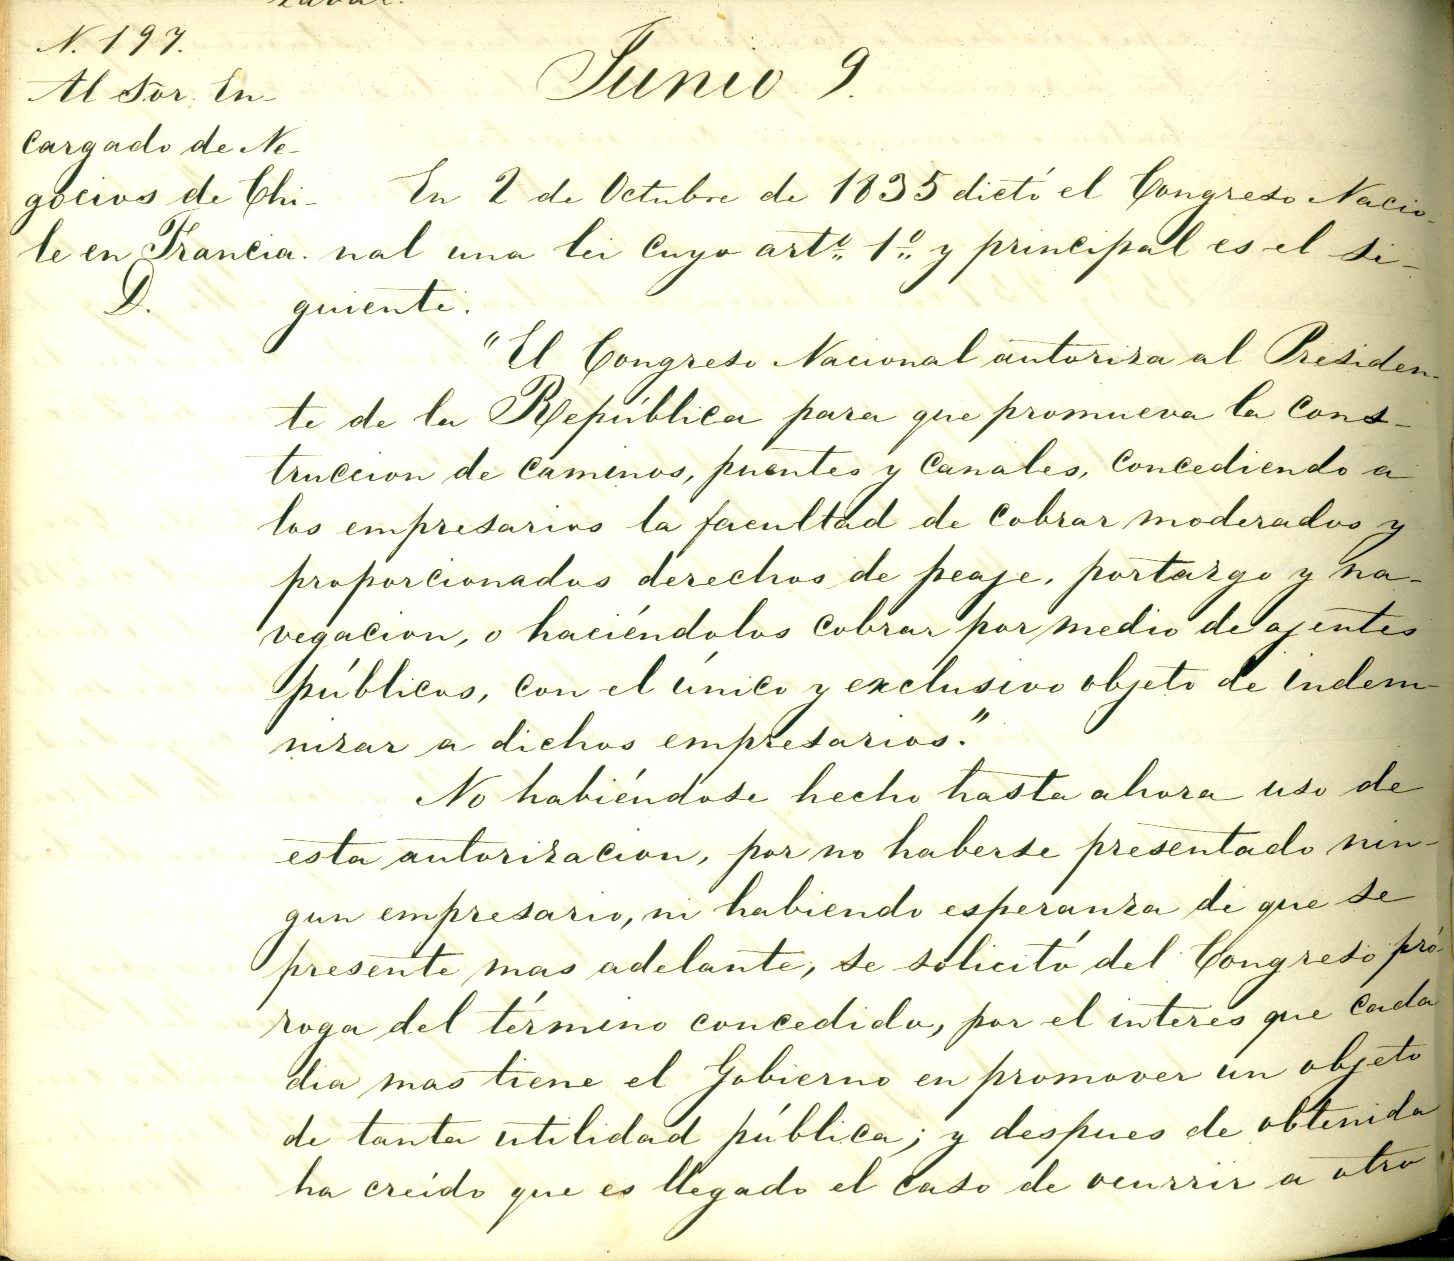 N. 197.
Al Sor. En-
cargado de Ne-
gocios de Chi-
le en Francia.
D.
Junio 9.
En 2 de Octubre de 1835 dictó el Congreso Nacio-
nal una lei cuyo artº 1º y principal es el si-
guiente.
"El Congreso Nacional autoriza al Presiden-
te de la República para que promueva la cons-
truccion de caminos, puentes y canales, concediendo a
los empresarios la facultad de cobrar moderados y
proporcionados derechos de peaje, portazgo y na-
vegacion, o haciéndolos cobrar por medio de ajentes
públicos, con el único y exclusivo objeto de indem-
nizar a dichos empresarios."
No habiéndose hecho hasta ahora uso de
esta autorizacion, por no haberse presentado nin-
gun empresario, ni habiendo esperanza de que se
presente mas adelante, se solicitó del Congreso pró-
roga del término concedido, por el interes que cada
dia mas tiene el Gobierno en promover un objeto
de tanta utilidad pública; y despues de obtenida
ha creido que es llegado el caso de ocurrir a otro